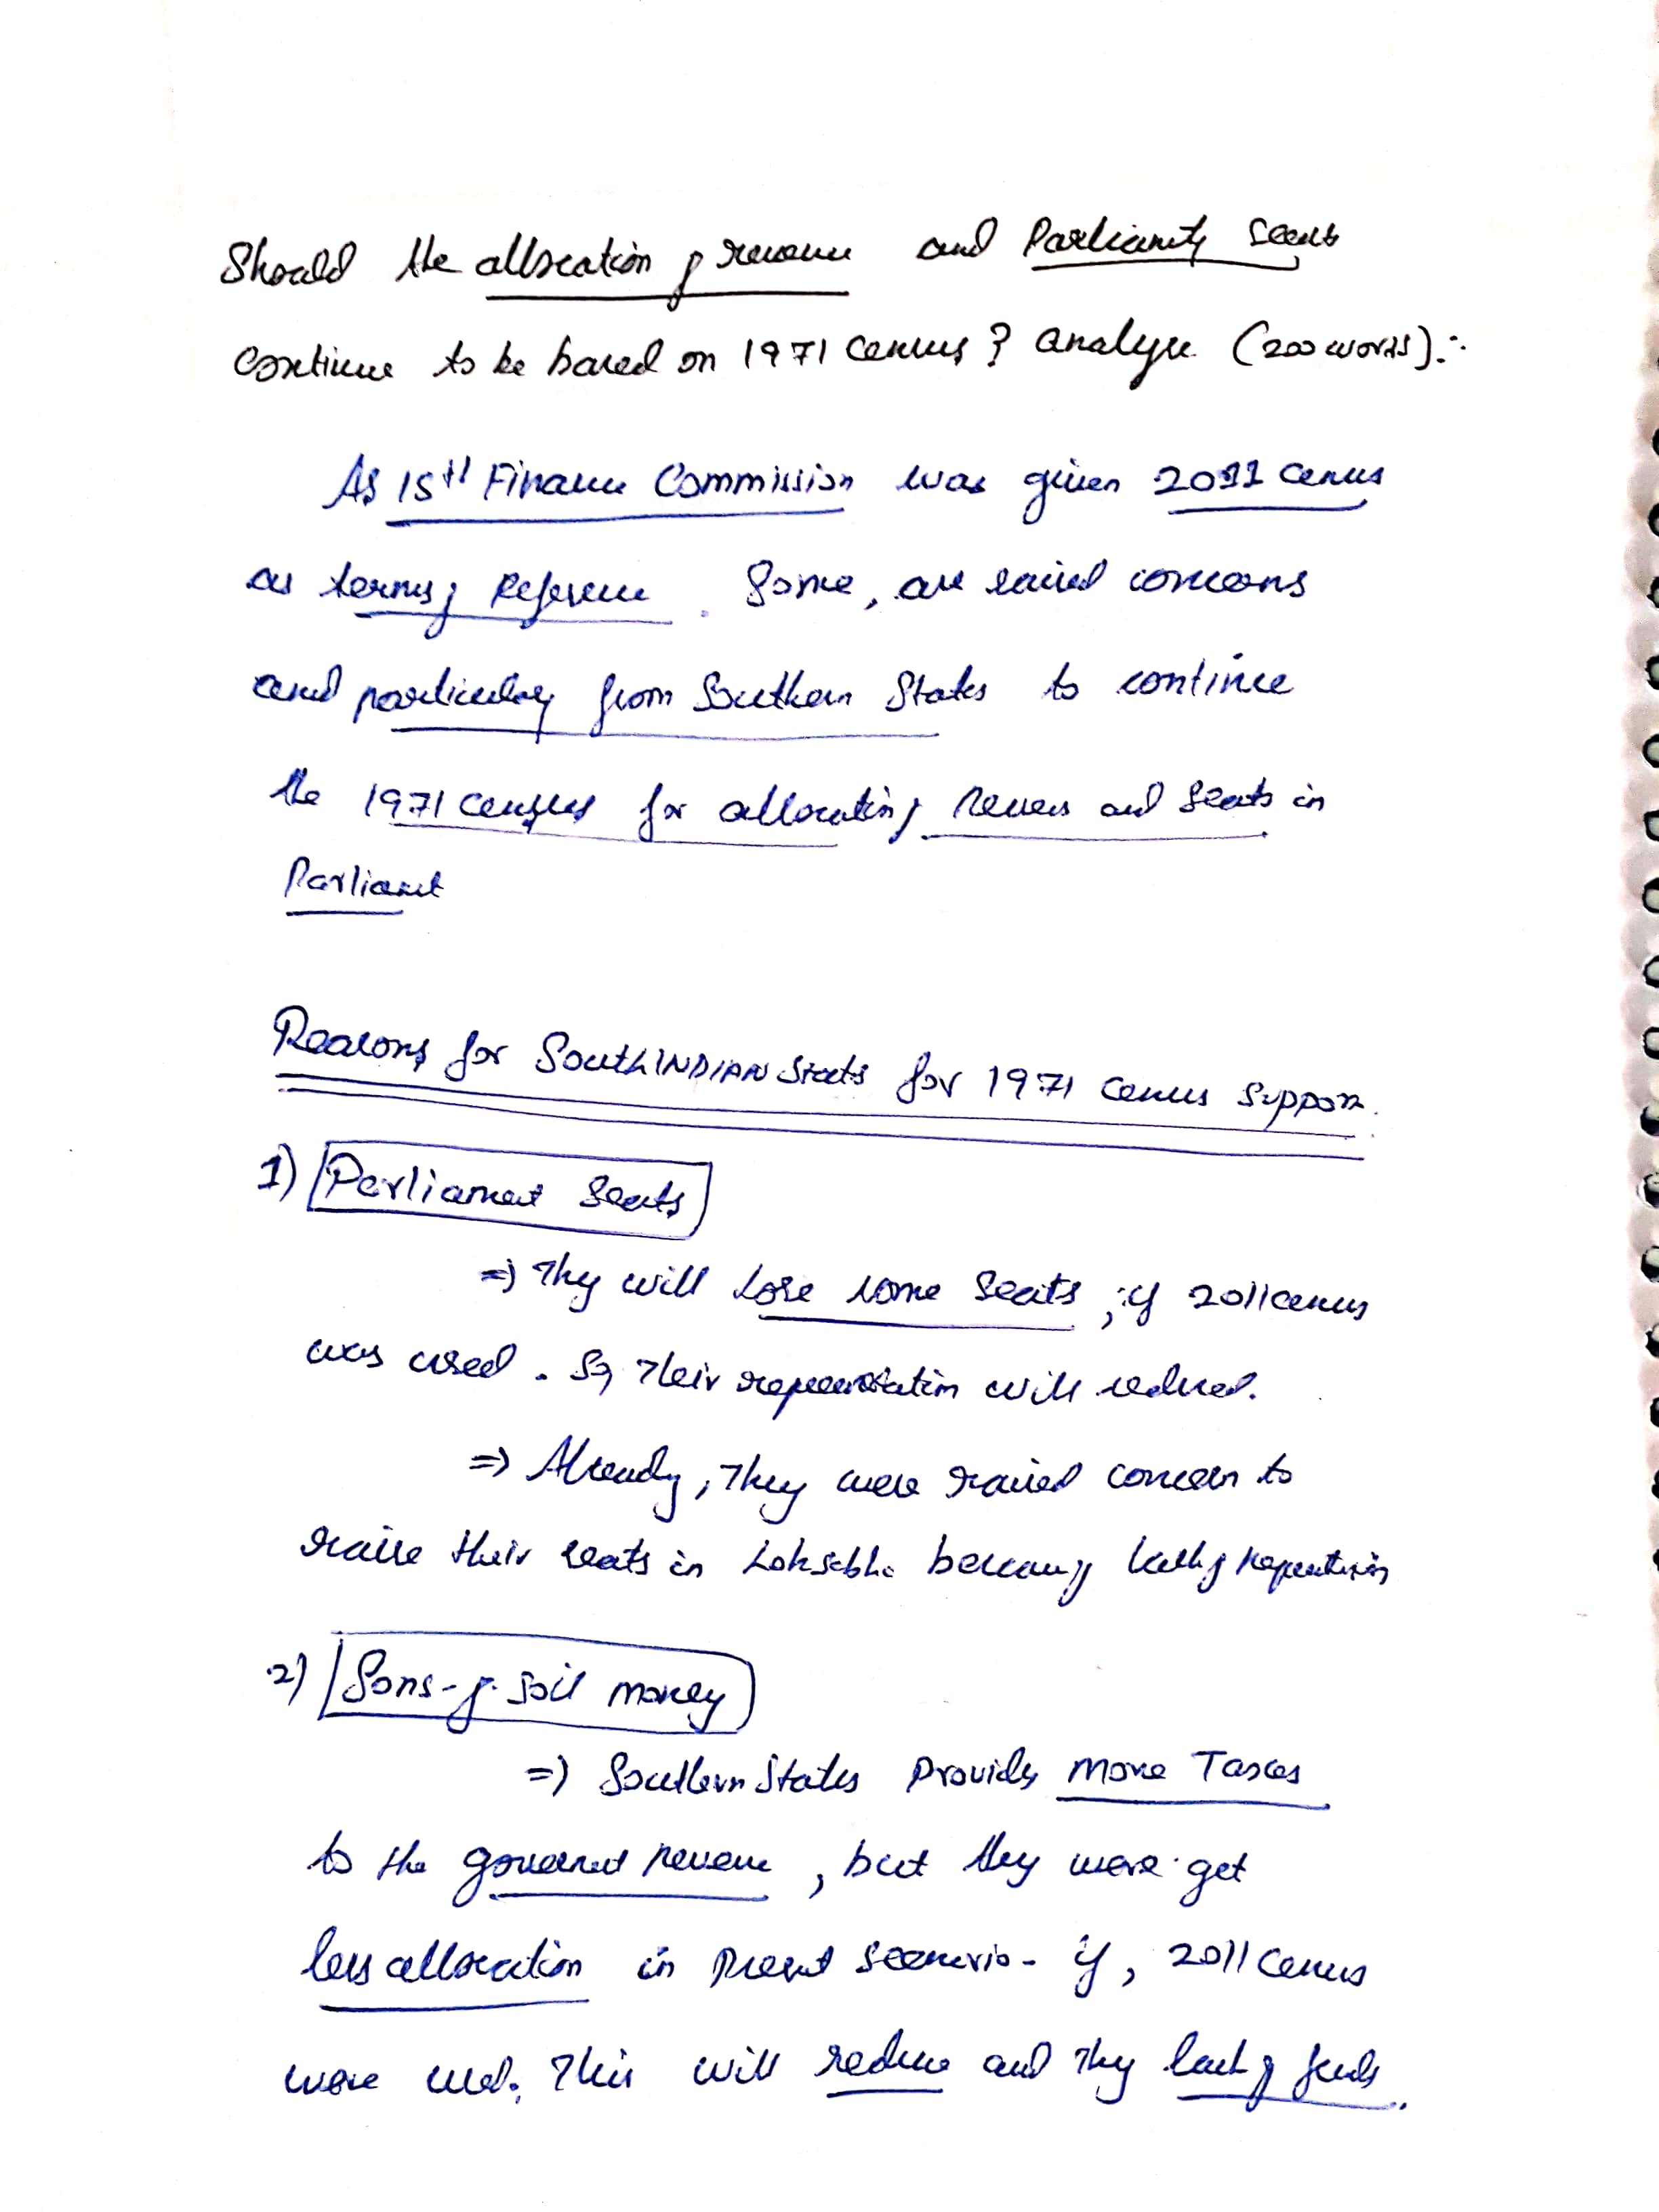 Should the allocation of revenue and Parliamenty Seats
continue to be based on 1971 census ? analyse (200 words).:
As 15th Finance Commission was given 2011 census
as terms of Reference . Some, are raised concerns
and particularly from Southern States to continue
the 1971 census for allocating Revenue and Seats in
Parliament
Reasons for South INDIAN States for 1971 census support.
1) Parliament Seats
=> They will lose some seats, if 2011 census
was used . So, Their representation will reduced.
=> Already, They were raised concern to
raise their seats in Loksabha because lack of
2) Sons-of-soil money
=> Southern States Provides more Taxes
to the government revenue , but they were get
less allocation in present scenerio - if, 2011 census
were used. This will reduce and They lack of funds.